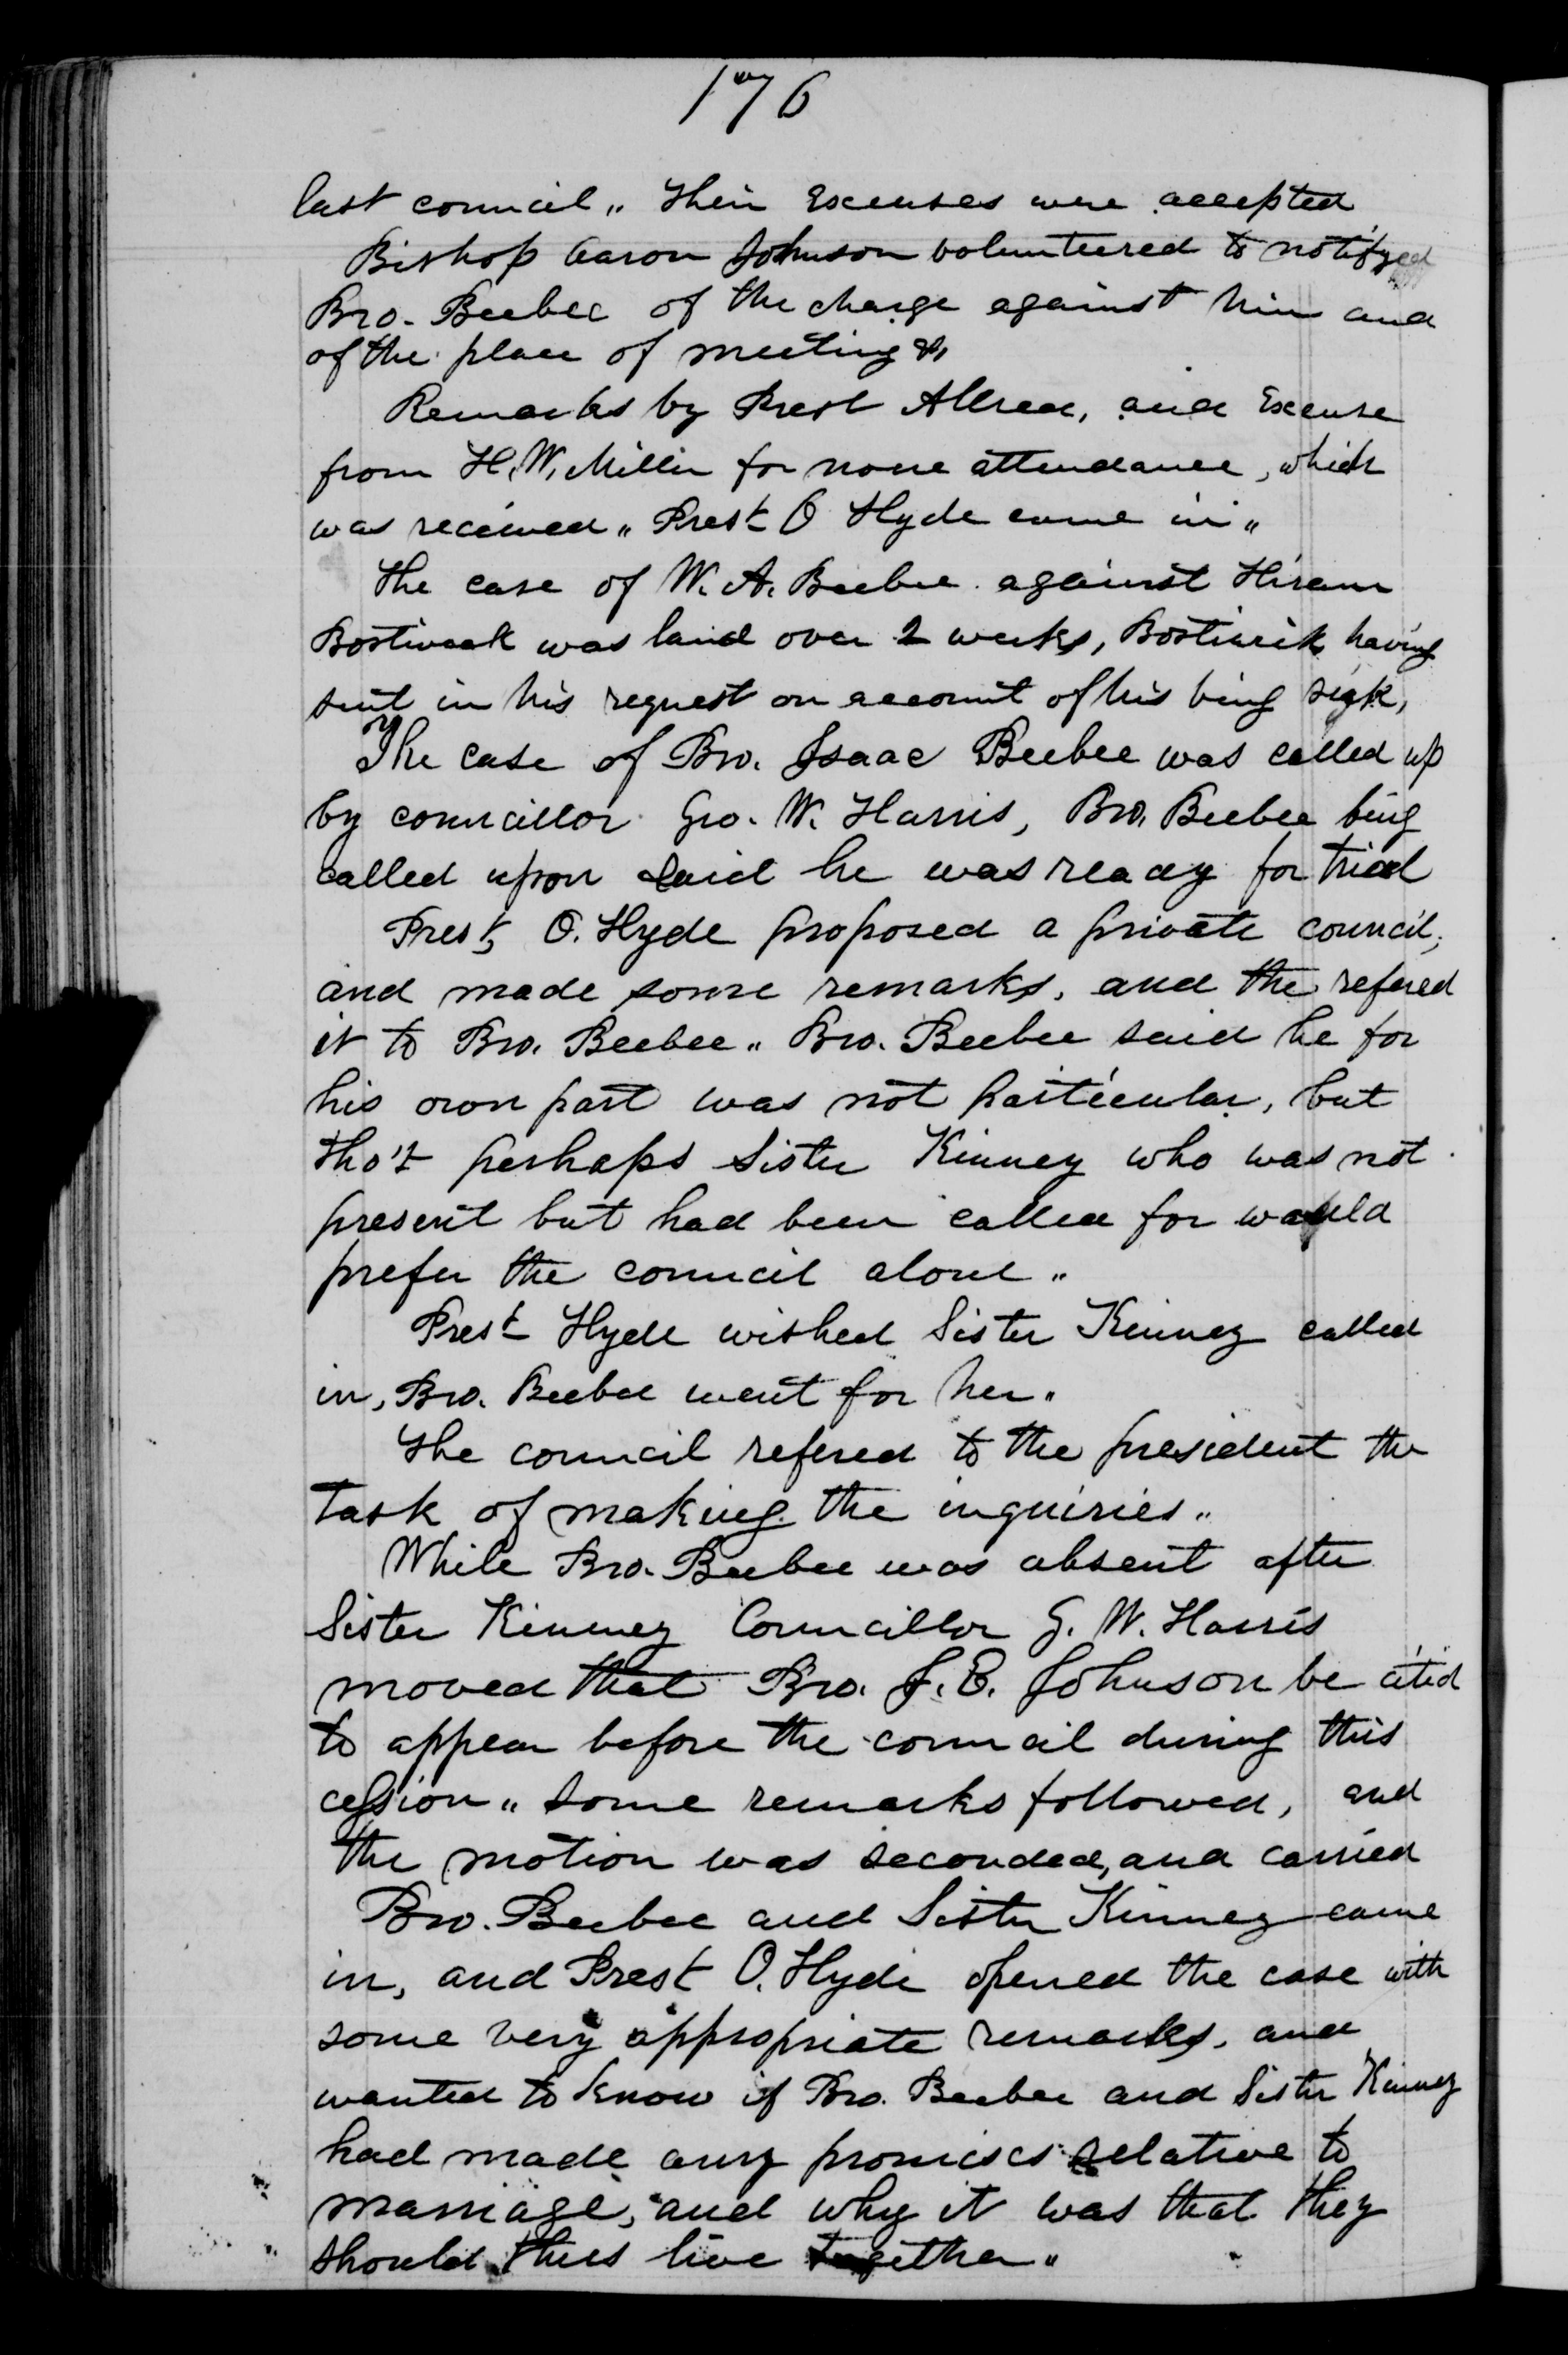 176
last council „ Their Excuses were accepted
Bishop Aaron Johnson volunteered to notifyed
Bro. Beebee of the charge against him and
of the place of meeting &,
Remarks by Prest Allred, and Excuse
from H. W. Miller for none attendance, which
was received „ Prest O Hyde came in „
The case of W. A. Beebee against Hiram
Bostweek was laid over 2 weeks, Bostwick having
sent in his request on account of his being sick,
The case of Bro. Isaac Beebee was called up
by councillor Geo. W. Harris, Bro. Beebee being
called upon said he was ready for trial
Prest, O. Hyde proposed a private council,
and made some remarks, and the refered
it to Bro. Beebee „ Bro. Beebee said he for
his own part was not particular, but
tho't perhaps Sister Kinney who was not
present but had been called for would
prefer the council alone „
Prest Hyde wished Sister Kinney called
in, Bro. Beebee went for her „
The council refered to the president the
task of making the inquiries „
While Bro. Beebee was absent after
Sister Kinney Councillor G. W. Harris
moved that Bro. J. E. Johnson be cited
to appear before the council during this
cession „ Some remarks followed, and
the motion was seconded, and carried
Bro. Beebee and Sister Kinney came
in, and Prest O. Hyde opened the case with
some very appropriate remarks, and
wanted to know if Bro. Beebee and Sister Kinney
had made any promises relative to
marriage, and why it was that they
should thus live together „